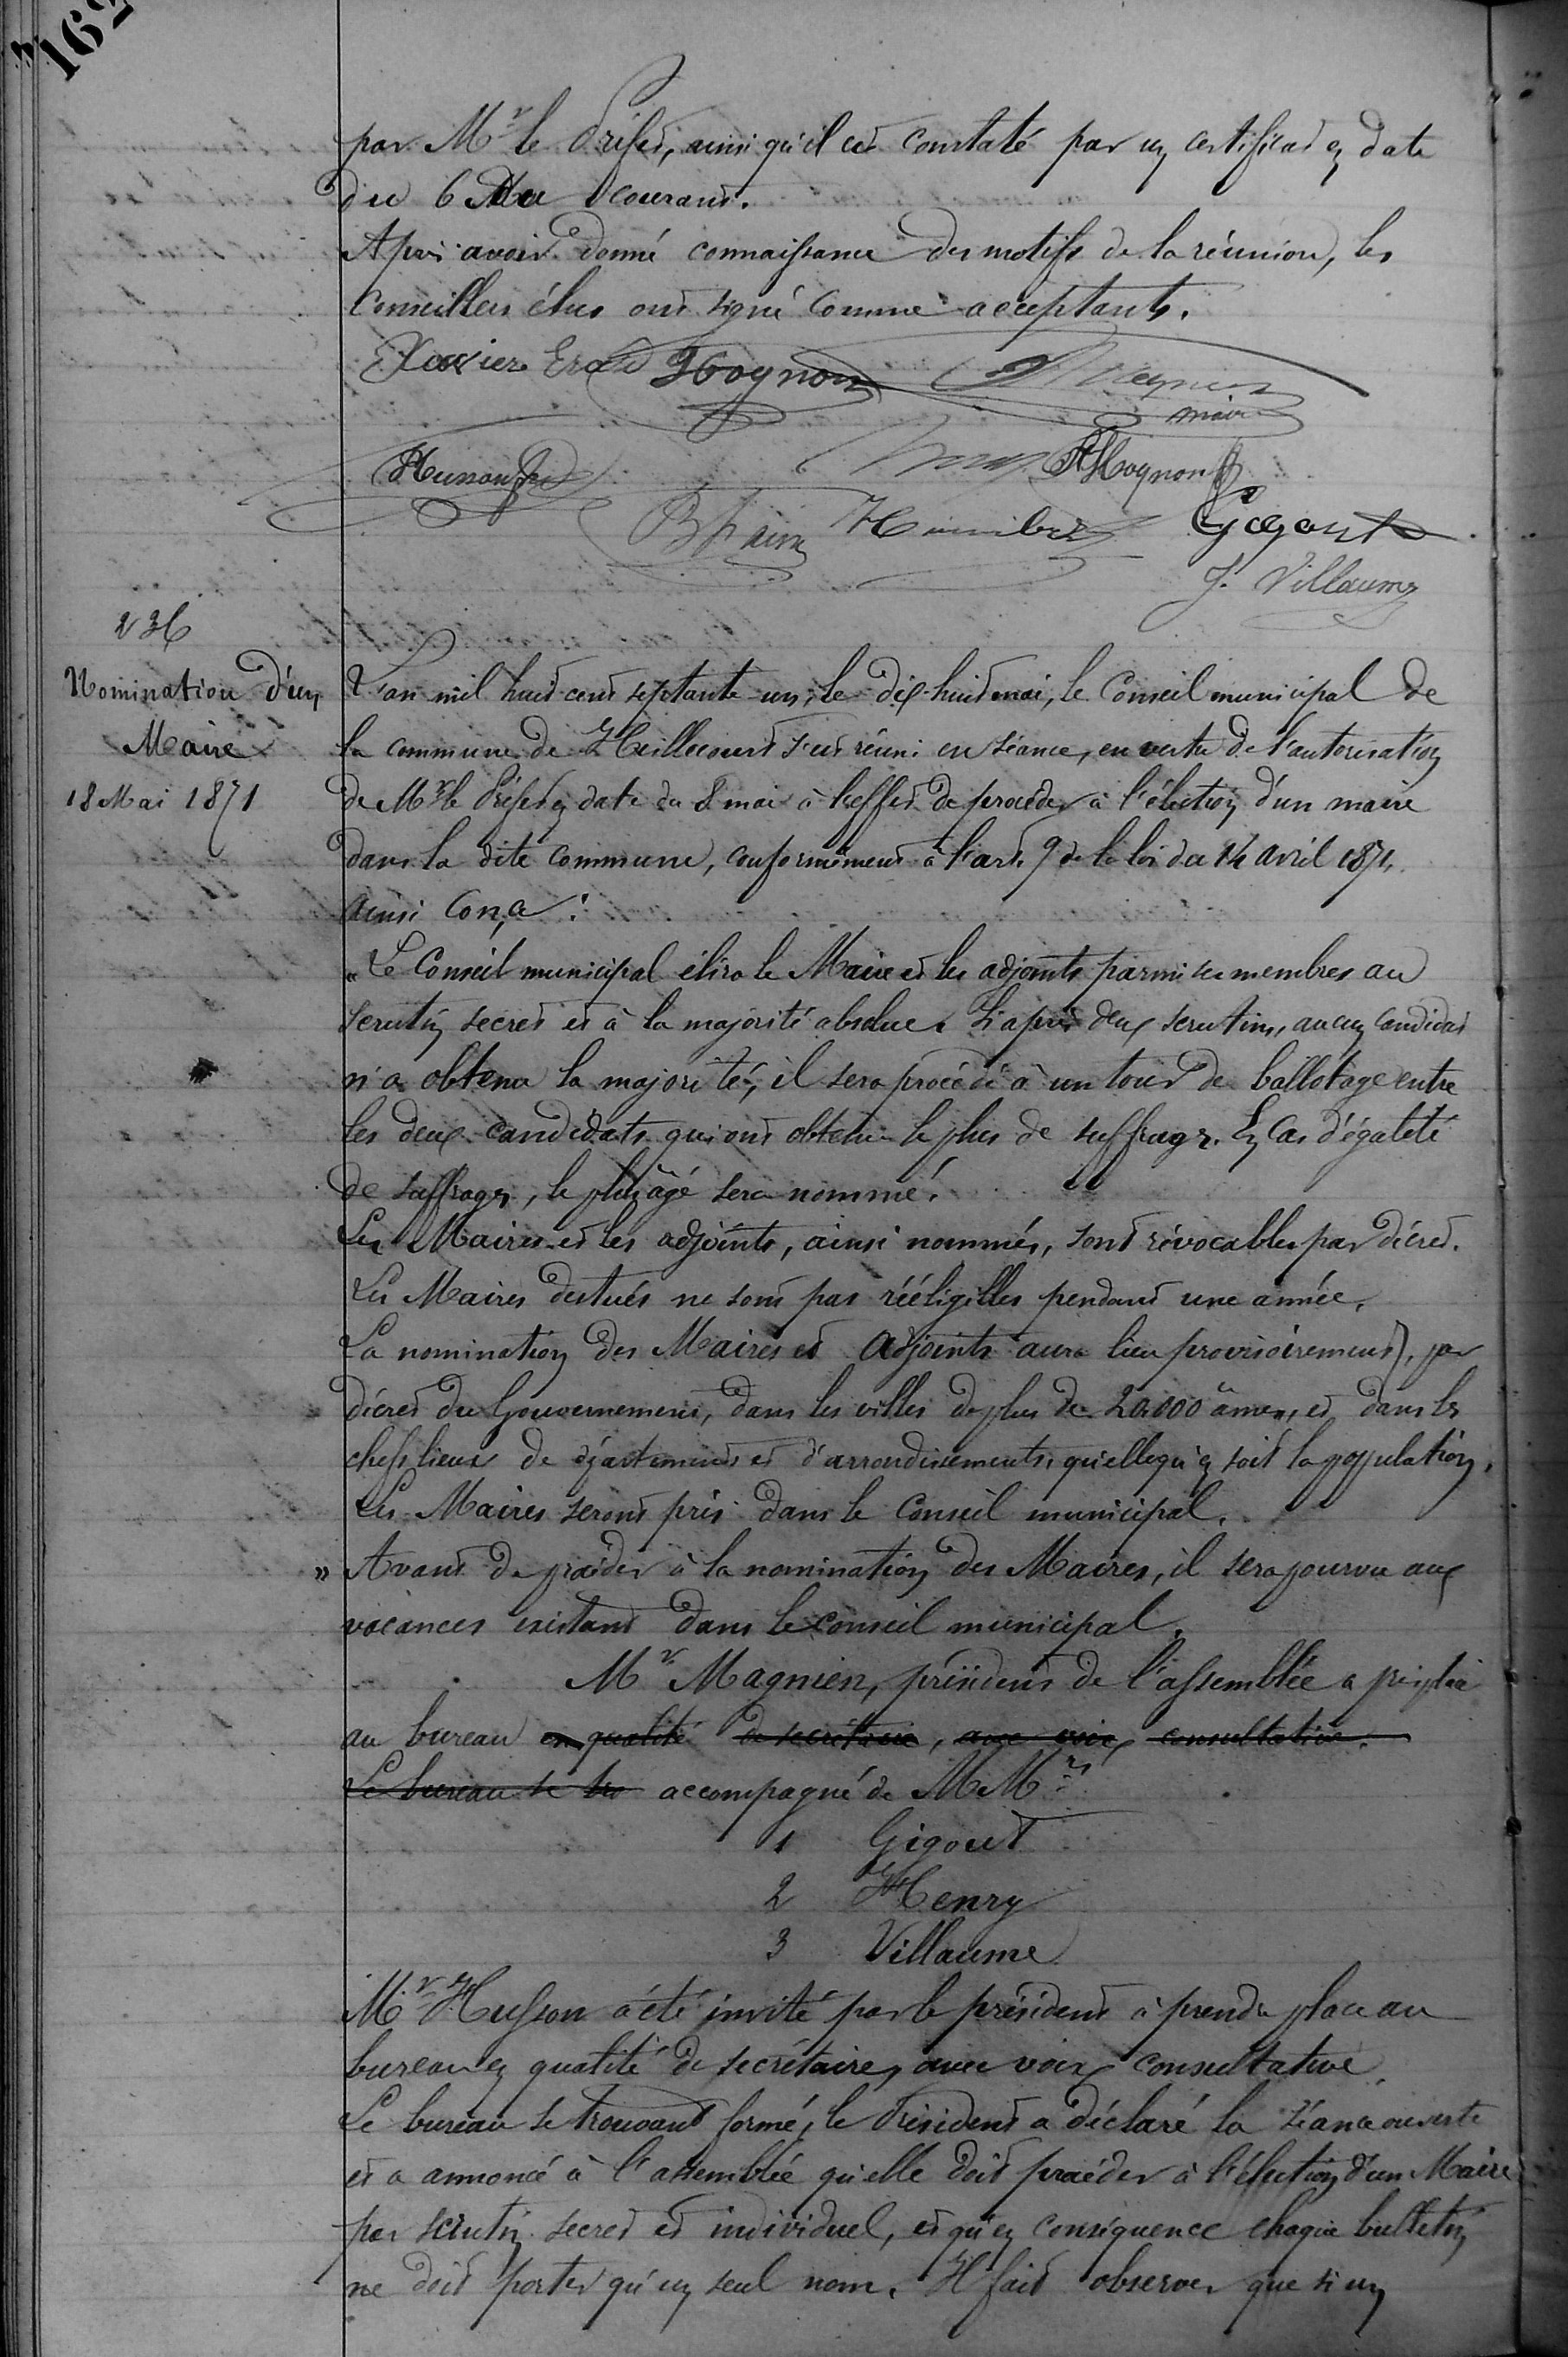 162
par Mr le Préfet, ainsi qu'il est constaté par un certificat en date
du 6 Mai courant.
Après avoir donné connaissance des motifs de la réunion, les
Conseillers élus ont signé comme acceptants.
Xavier Hognon Magnien
maire
Husson Hognon
Humbert Gigout
J. Villaume
236
Nomination d'un
Maire
18 Mai 1871
L'an mil huit cent septante un, le dix huit mai, le Conseil municipal de
la commune de Heillecourt s'est réuni en séance, en vertu de l'autorisation
de Mr le Préfet en date du 8 mai à l'effet de procéder à l'élection d'un maire
dans la dite commune, conformément à l'art. 9 de la loi du 14 avril 1871,
ainsi conçu :
" Le Conseil municipal élira le Maire et les adjoints parmi ses membres au
scrutin secret et à la majorité absolue. Si après deux scrutins, aucun candidat
n'a obtenu la majorité, il sera procédé à un tour de ballotage entre
les deux candidats qui ont obtenu le plus de suffrages. En cas d'égalité
de suffrages, le plus âgé sera nommé.
Les Maires et les adjoints, ainsi nommés, sont révocables par décret.
Les Maires destués ne sont pas rééligilles pendant une année.
La nomination des Maires et adjoints aura lieu provisoirement, par
décret du Gouvernement, dans les villes de plus de 20.000 âmes, et dans les
chefs lieux de départements et d'arrondissements, quellequ'en soit la population.
Les Maires seront pris dans le Conseil municipal.
" Avant de procéder à la nomination des Maires, il sera pourvu aux
vacances existant dans le conseil municipal.
Mr Magnien, président de l'assemblée a pris place
au bureau en qualité de secrétaire, avec voix consultative.
Le bureau se tro accompagné de MMrs
1 Gigout
2 Henry
3 Villaume
Mr Husson a été invité par le président à prendre place au
bureau en qualité de secrétaire, avec voix consultative.
Le bureau se trouvant formé, le Président a déclaré la séance ouverte
et a annoncé à l'assemblée qu'elle doit procéder à l'élection d'un Maire
par scrutin secret et individuel, et qu'en conséquence chaque bulletin
ne doit porter qu'un seul nom. Il fait observer que si un